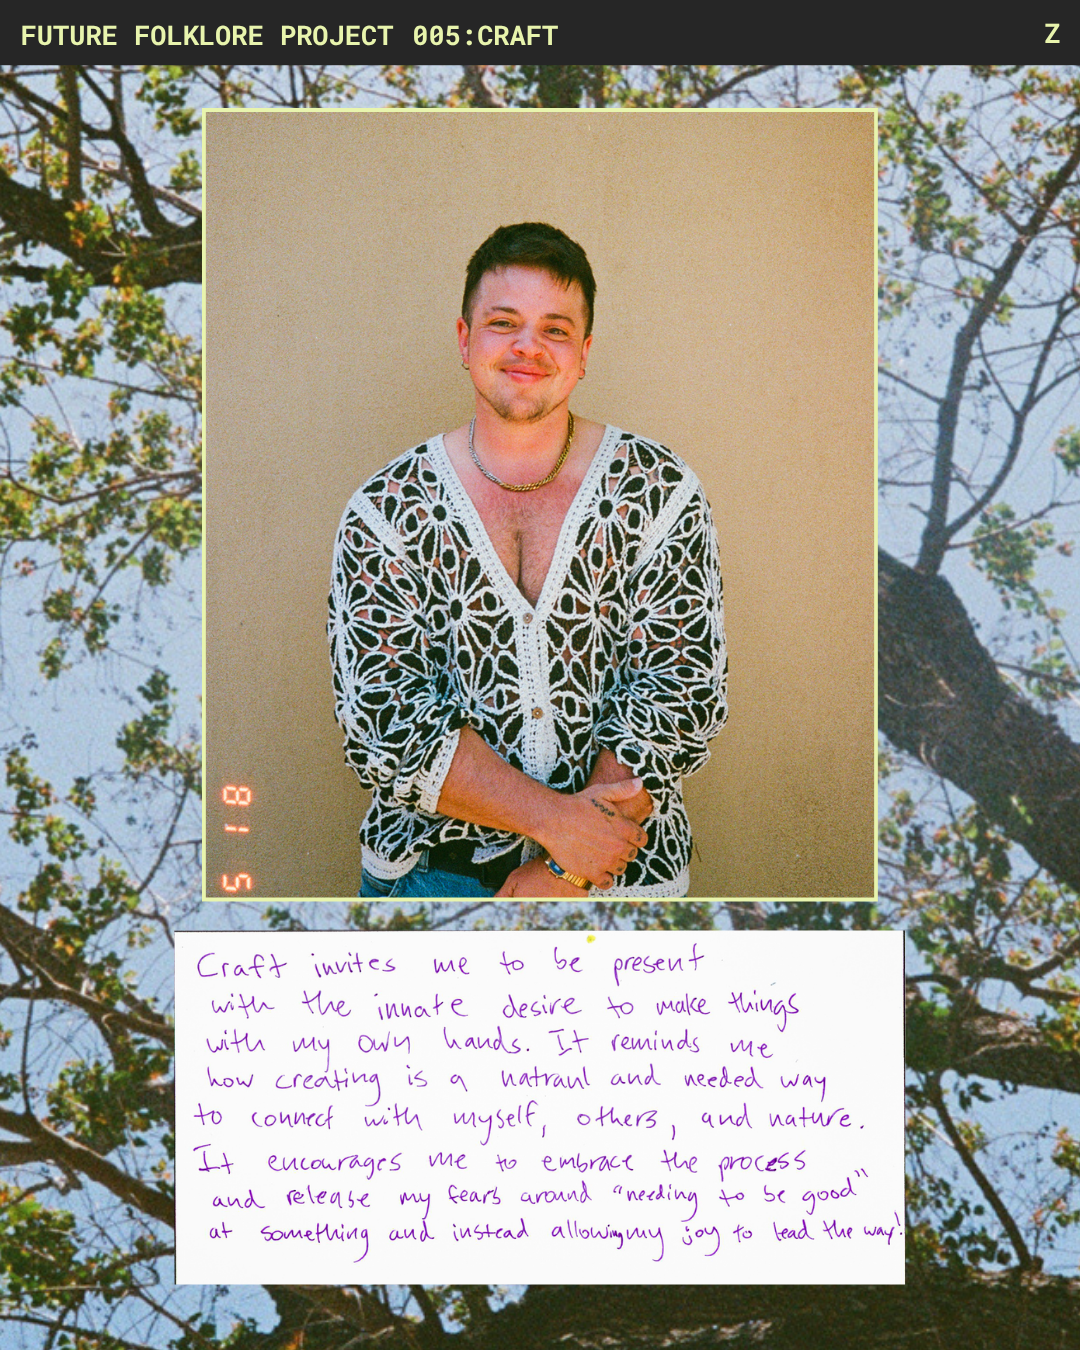 FUTURE FOLKLORE PROJECT 005:CRAFT
Z
5 18
Craft invites me to be present
with the innate desire to make things
with my own hands. It reminds me
how creating is a natraul and needed way
to connect with myself, others, and nature.
It encourages me to embrace the process
and release my fears around "needing to be good"
at something and instead allowing my joy to lead the way!